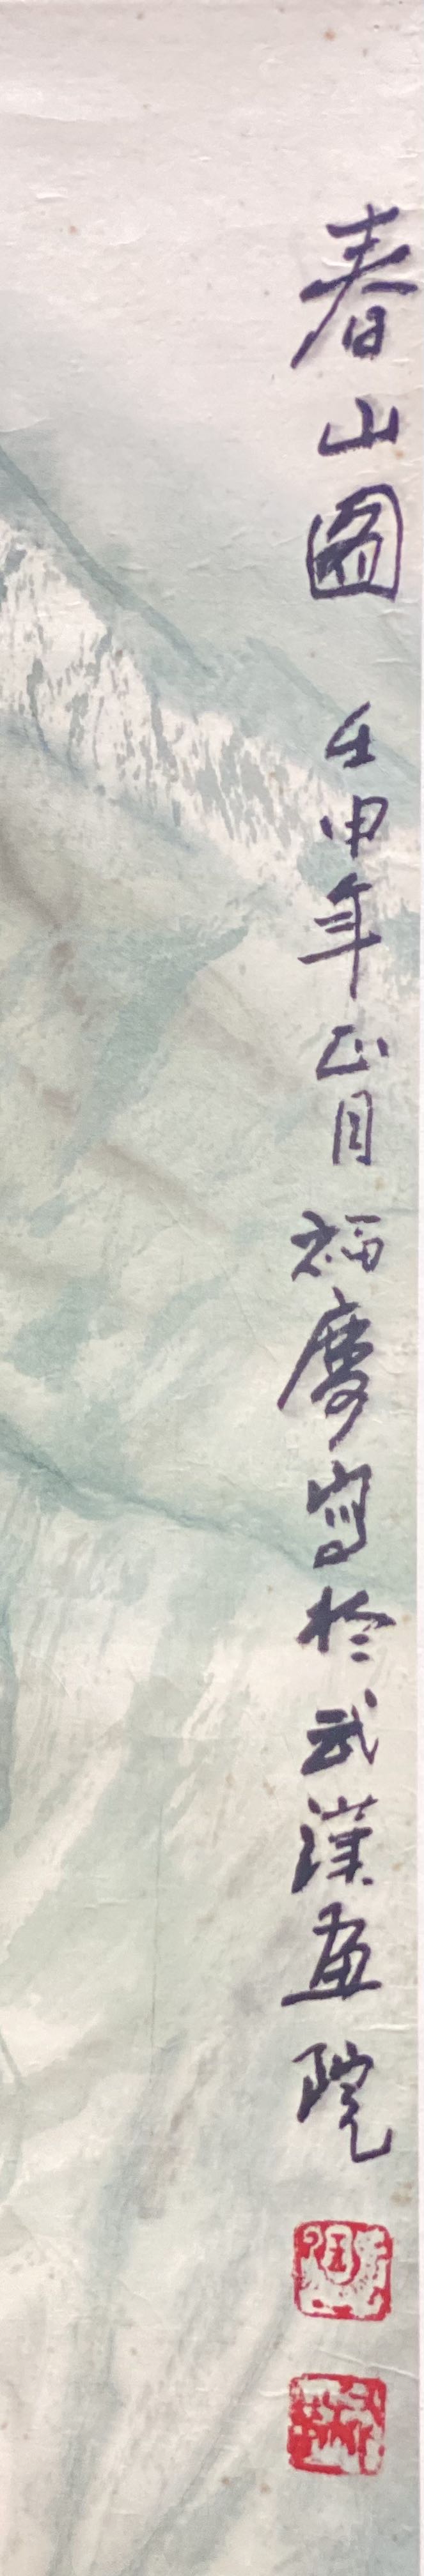 春山圖 壬申年正月福慶寫於武漢畫院